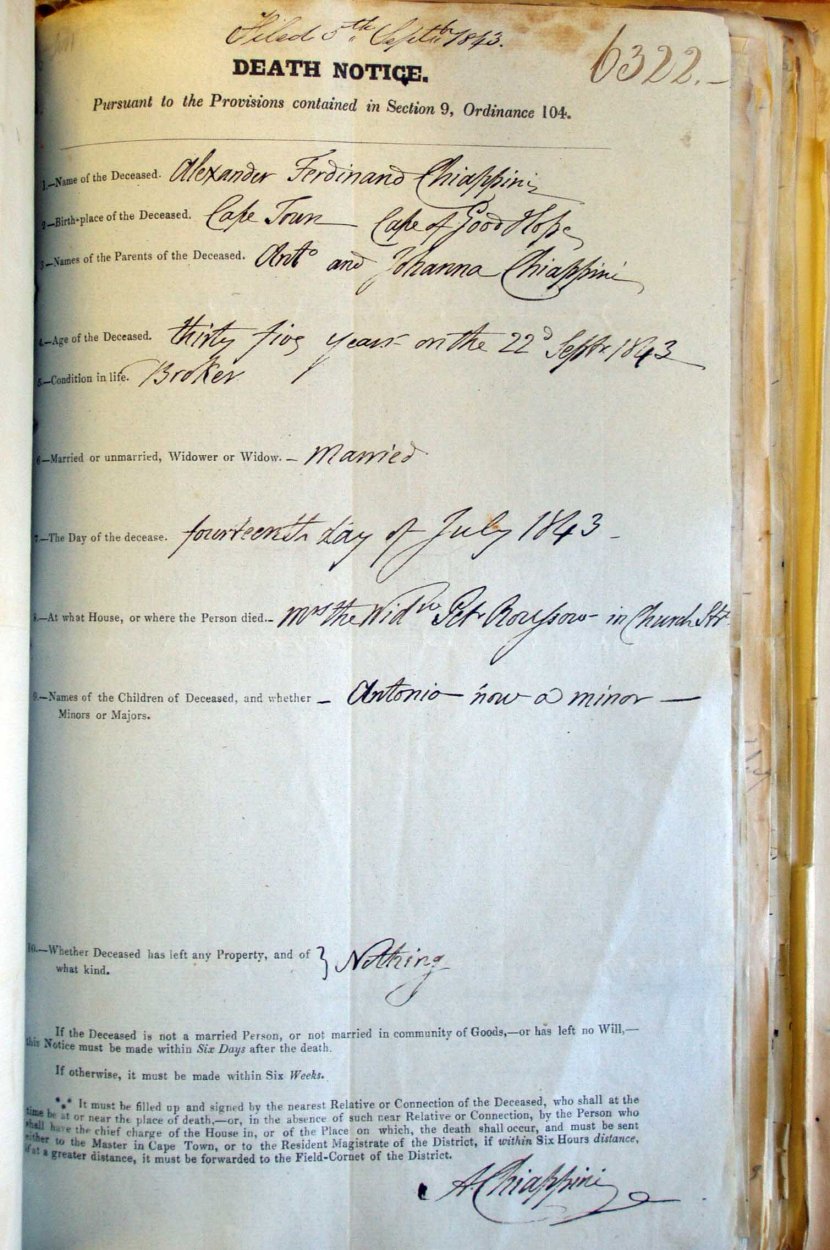 Filed 5th Septbr 1843.
6322.-
DEATH NOTICE.
Pursuant to the Provisions contained in Section 9, Ordinance 104.
1.—Name of the Deceased. Alexander Ferdinand Chiappini
2.—Birth-place of the Deceased. Cape Town Cape of Good Hope
3.—Names of the Parents of the Deceased. Anto and Johanna Chiappini
4.—Age of the Deceased. thirty five years on the 22d Septr 1843
5.—Condition in life. Broker
6.—Married or unmarried, Widower or Widow. — Married
7.—The Day of the decease. fourteenth day of July 1843 -
8.—At what House, or where the Person died.- Mrs the Widw Petr Roussow in Church Str
9.—Names of the Children of Deceased, and whether — Antonio now a minor —
Minors or Majors.
10.—Whether Deceased has left any Property, and of } Nothing
what kind.
If the Deceased is not a married Person, or not married in community of Goods,—or has left no Will,—
this Notice must be made within Six Days after the death.
If otherwise, it must be made within Six Weeks.
*** It must be filled up and signed by the nearest Relative or Connection of the Deceased, who shall at the
time be at or near the place of death,—or, in the absence of such near Relative or Connection, by the Person who
shall have the chief charge of the House in, or of the Place on which, the death shall occur, and must be sent
either to the Master in Cape Town, or to the Resident Magistrate of the District, if within Six Hours distance,
if at a greater distance, it must be forwarded to the Field-Cornet of the District.
A Chiappini